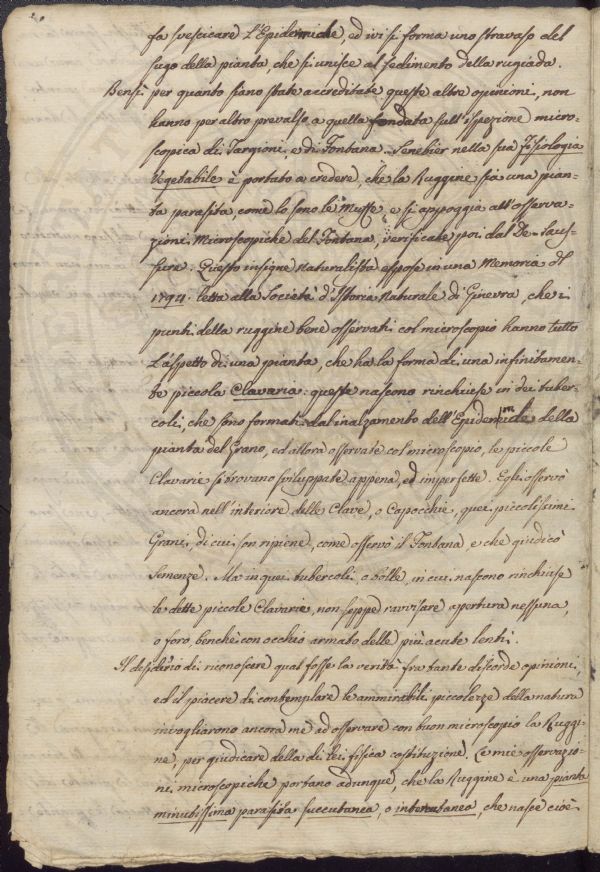 fa svescicare l'Epidermide, ed ivi si forma uno stravaso del
sugo della pianta, che si unisce al sedimento della rugiada.
Bensì per quanto siano state accreditate queste altre opinioni, non
hanno per altro prevalso a quella fondata sull'ispezione micro-
scopica di Targioni, e di Fontana. Senebier nella sua Fisiologia
Vegetabile è portato a credere, che la Ruggine sia una pian-
ta parasita, come lo sono le Muffe, e si appoggia all'osserva-
zioni Microscopiche del Fontana, verificate poi dal De-Saus-
sure. Questo insigne Naturalista espose in una Memoria del
1794. letta alla Società d'Istoria Naturale di Ginevra, che i
punti della ruggine bene osservati col microscopio hanno tutto
l'aspetto di una pianta, che ha la forma di una infinitamen-
te piccola Clavaria: queste nascono rinchiuse in dei tuber-
coli, che sono formati dal inalzamento dell'Epidermide della
pianta del Grano, ed allora osservate col microscopio, le piccole
Clavarie si trovano sviluppate appena, ed imperfette. Egli osservò
ancora nell'interiore delle Clave, o Capocchie, quei piccolissimi
Grani, di cui son ripiene, come osservò il Fontana, e che giudicò
Semenze. Ma in quei tubercoli, o bolle, in cui nascono rinchiuse
le dette piccole Clavarie, non seppe ravvisare apertura nessuna,
o foro, benchè con occhio armato delle più acute lenti.
Il desiderio di riconoscere qual fosse la verità fra tante discorde opinioni,
ed il piacere di contemplare le ammirabili piccolezze della natura
invogliarono ancora me ad osservare con buon microscopio la Ruggi-
ne, per giudicare della di lei fisica costituzione. Le mie osservazio-
ni microscopiche portano adunque, che la Ruggine è una pianta
minutissima parasita succutanea, o intercutanea, che nasce cioè